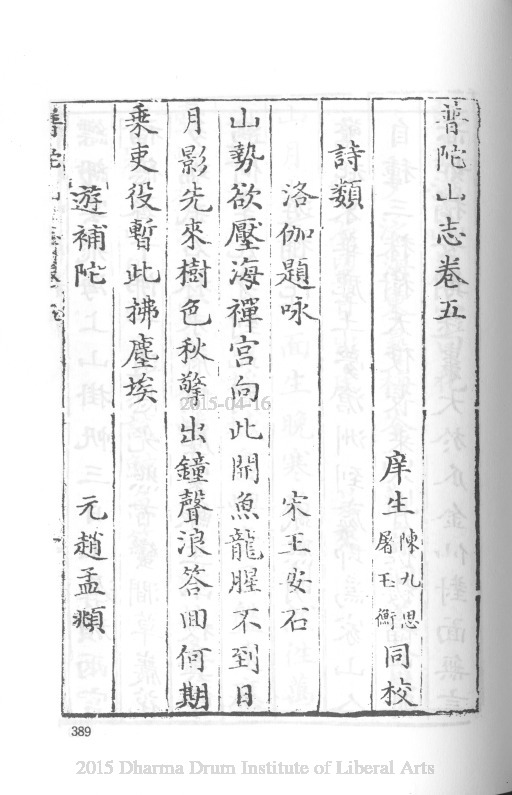 普陀山志卷五
庠生 陳九思 屠玉衡 同校
詩類
洛伽題咏 宋王安石
山勢欲壓海禪宫向此開魚龍腥不到日
月影先來樹色秋擎出鐘聲浪答回何期
乘吏役暫此拂塵埃
遊補陀 元趙孟頫
2015-04-16
389
2015 Dharma Drum Institute of Liberal Arts